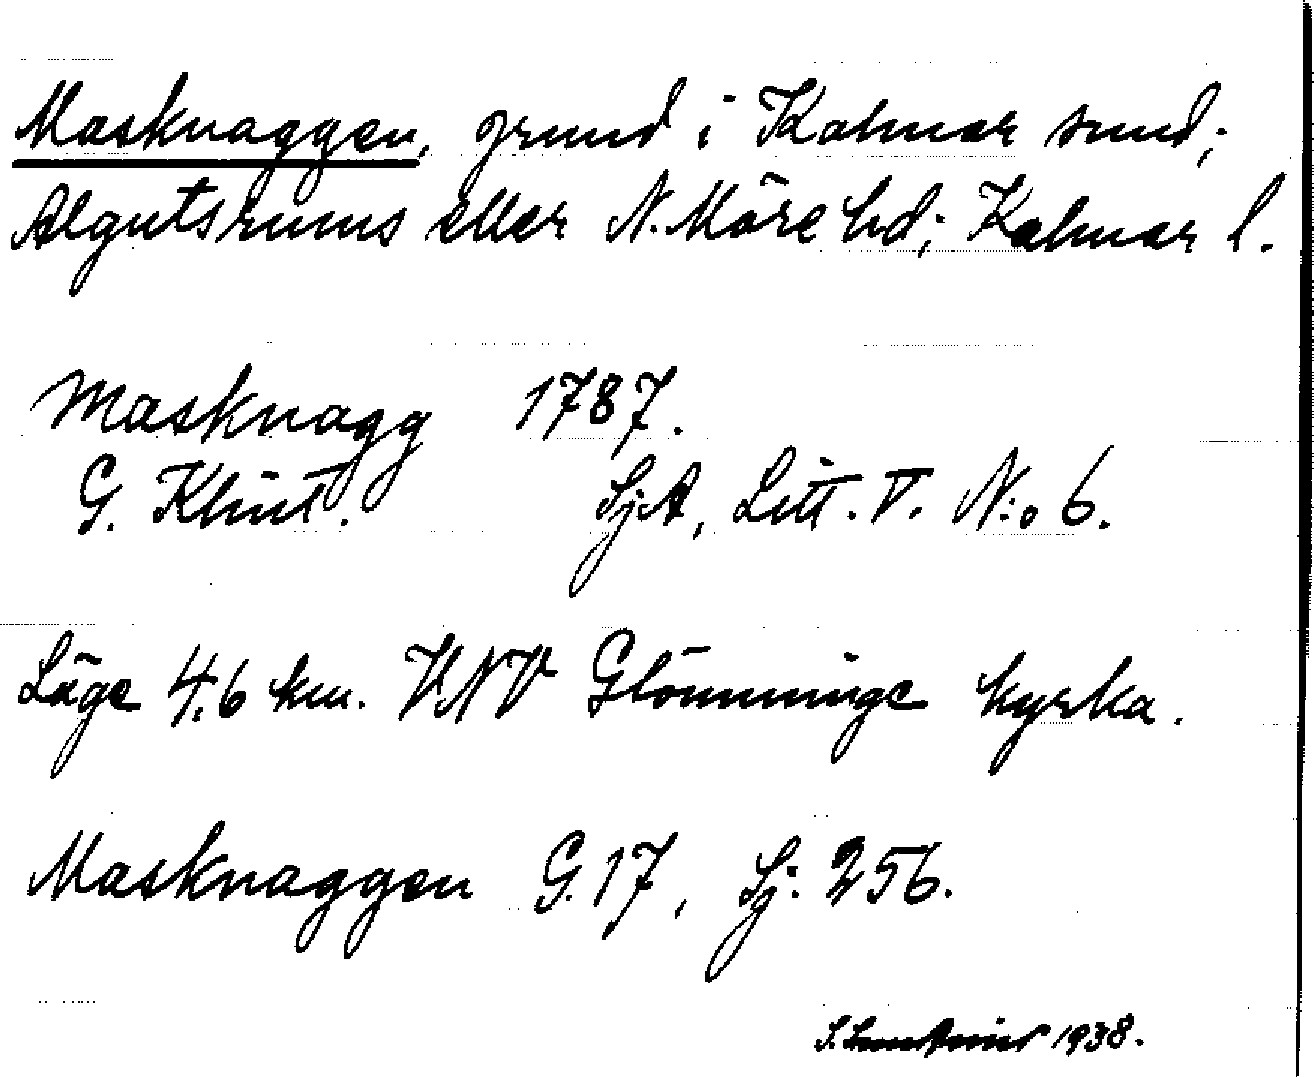 Masknaggen, grund i Kalmar sund;
Algutsrums eller N. Möre hd; Kalmar l.
Masknagg 1787.
G. Klint. SjA, Litt. V. N:o 6.
Läge 4,6 km. VNV Glömminge kyrka.
Masknaggen G. 17, Sj. 256.
S. 1938.